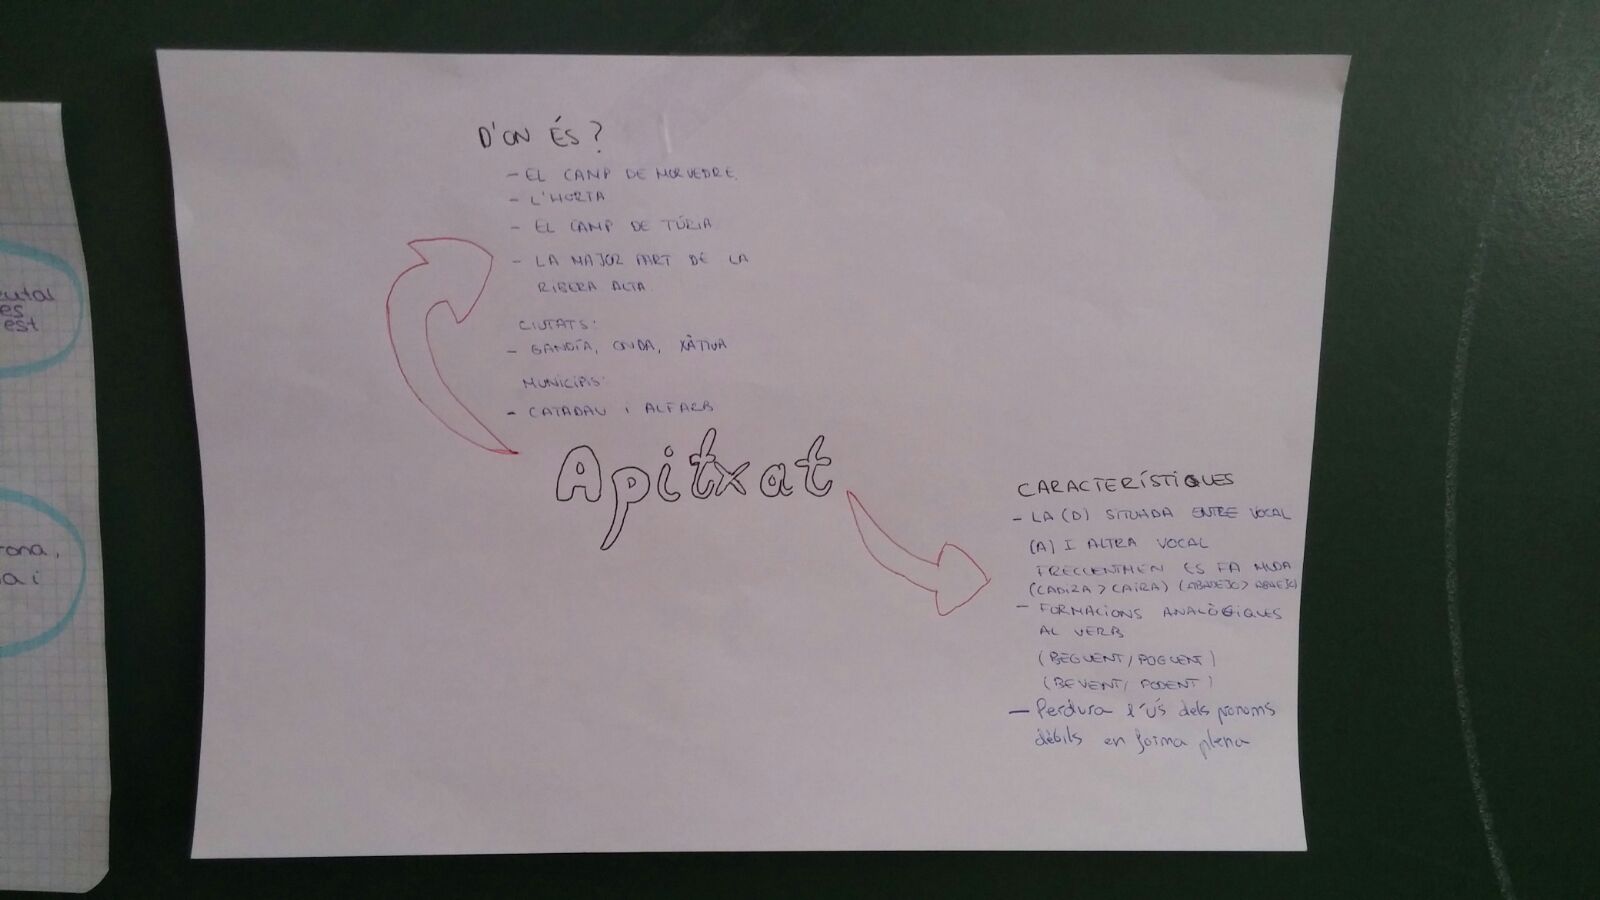 D'ON ÉS?
- EL CAMP DE MORVEDRE.
- L'HORTA
- EL CAMP DE TÚRIA
- LA MAJOR PART DE LA
RIBERA ALTA.
CIUTATS:
- GANDÍA, ONDA, XÀTIVA
MUNICIPIS:
- CATADAU I ALFARB
Apitxat
CARACTERÍSTIQUES
- LA (D) SITUADA ENTRE VOCAL
(A) I ALTRA VOCAL
FRECUENTMEN ES FA MUDA
(CADIRA > CAIRA) (ABADEJO > ABAEJO)
- FORMACIONS ANALÒGIQUES
AL VERB
(BEGUENT/POGUENT)
(BEVENT/PODENT)
- Perdura l'ús dels pronoms
dèbils en forma plena
es
est
rona,
a i